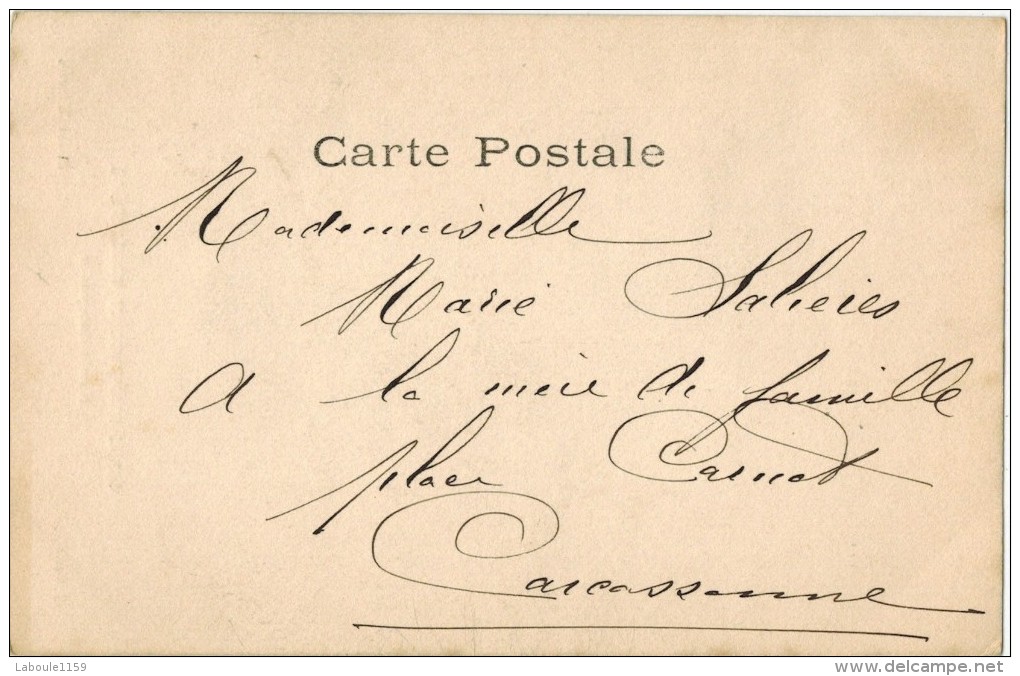 Carte Postale
Mademoiselle
Marie Salières
A la mère de famille
place Carnot
Carcassonne
Laboule1159
www.delcampe.net